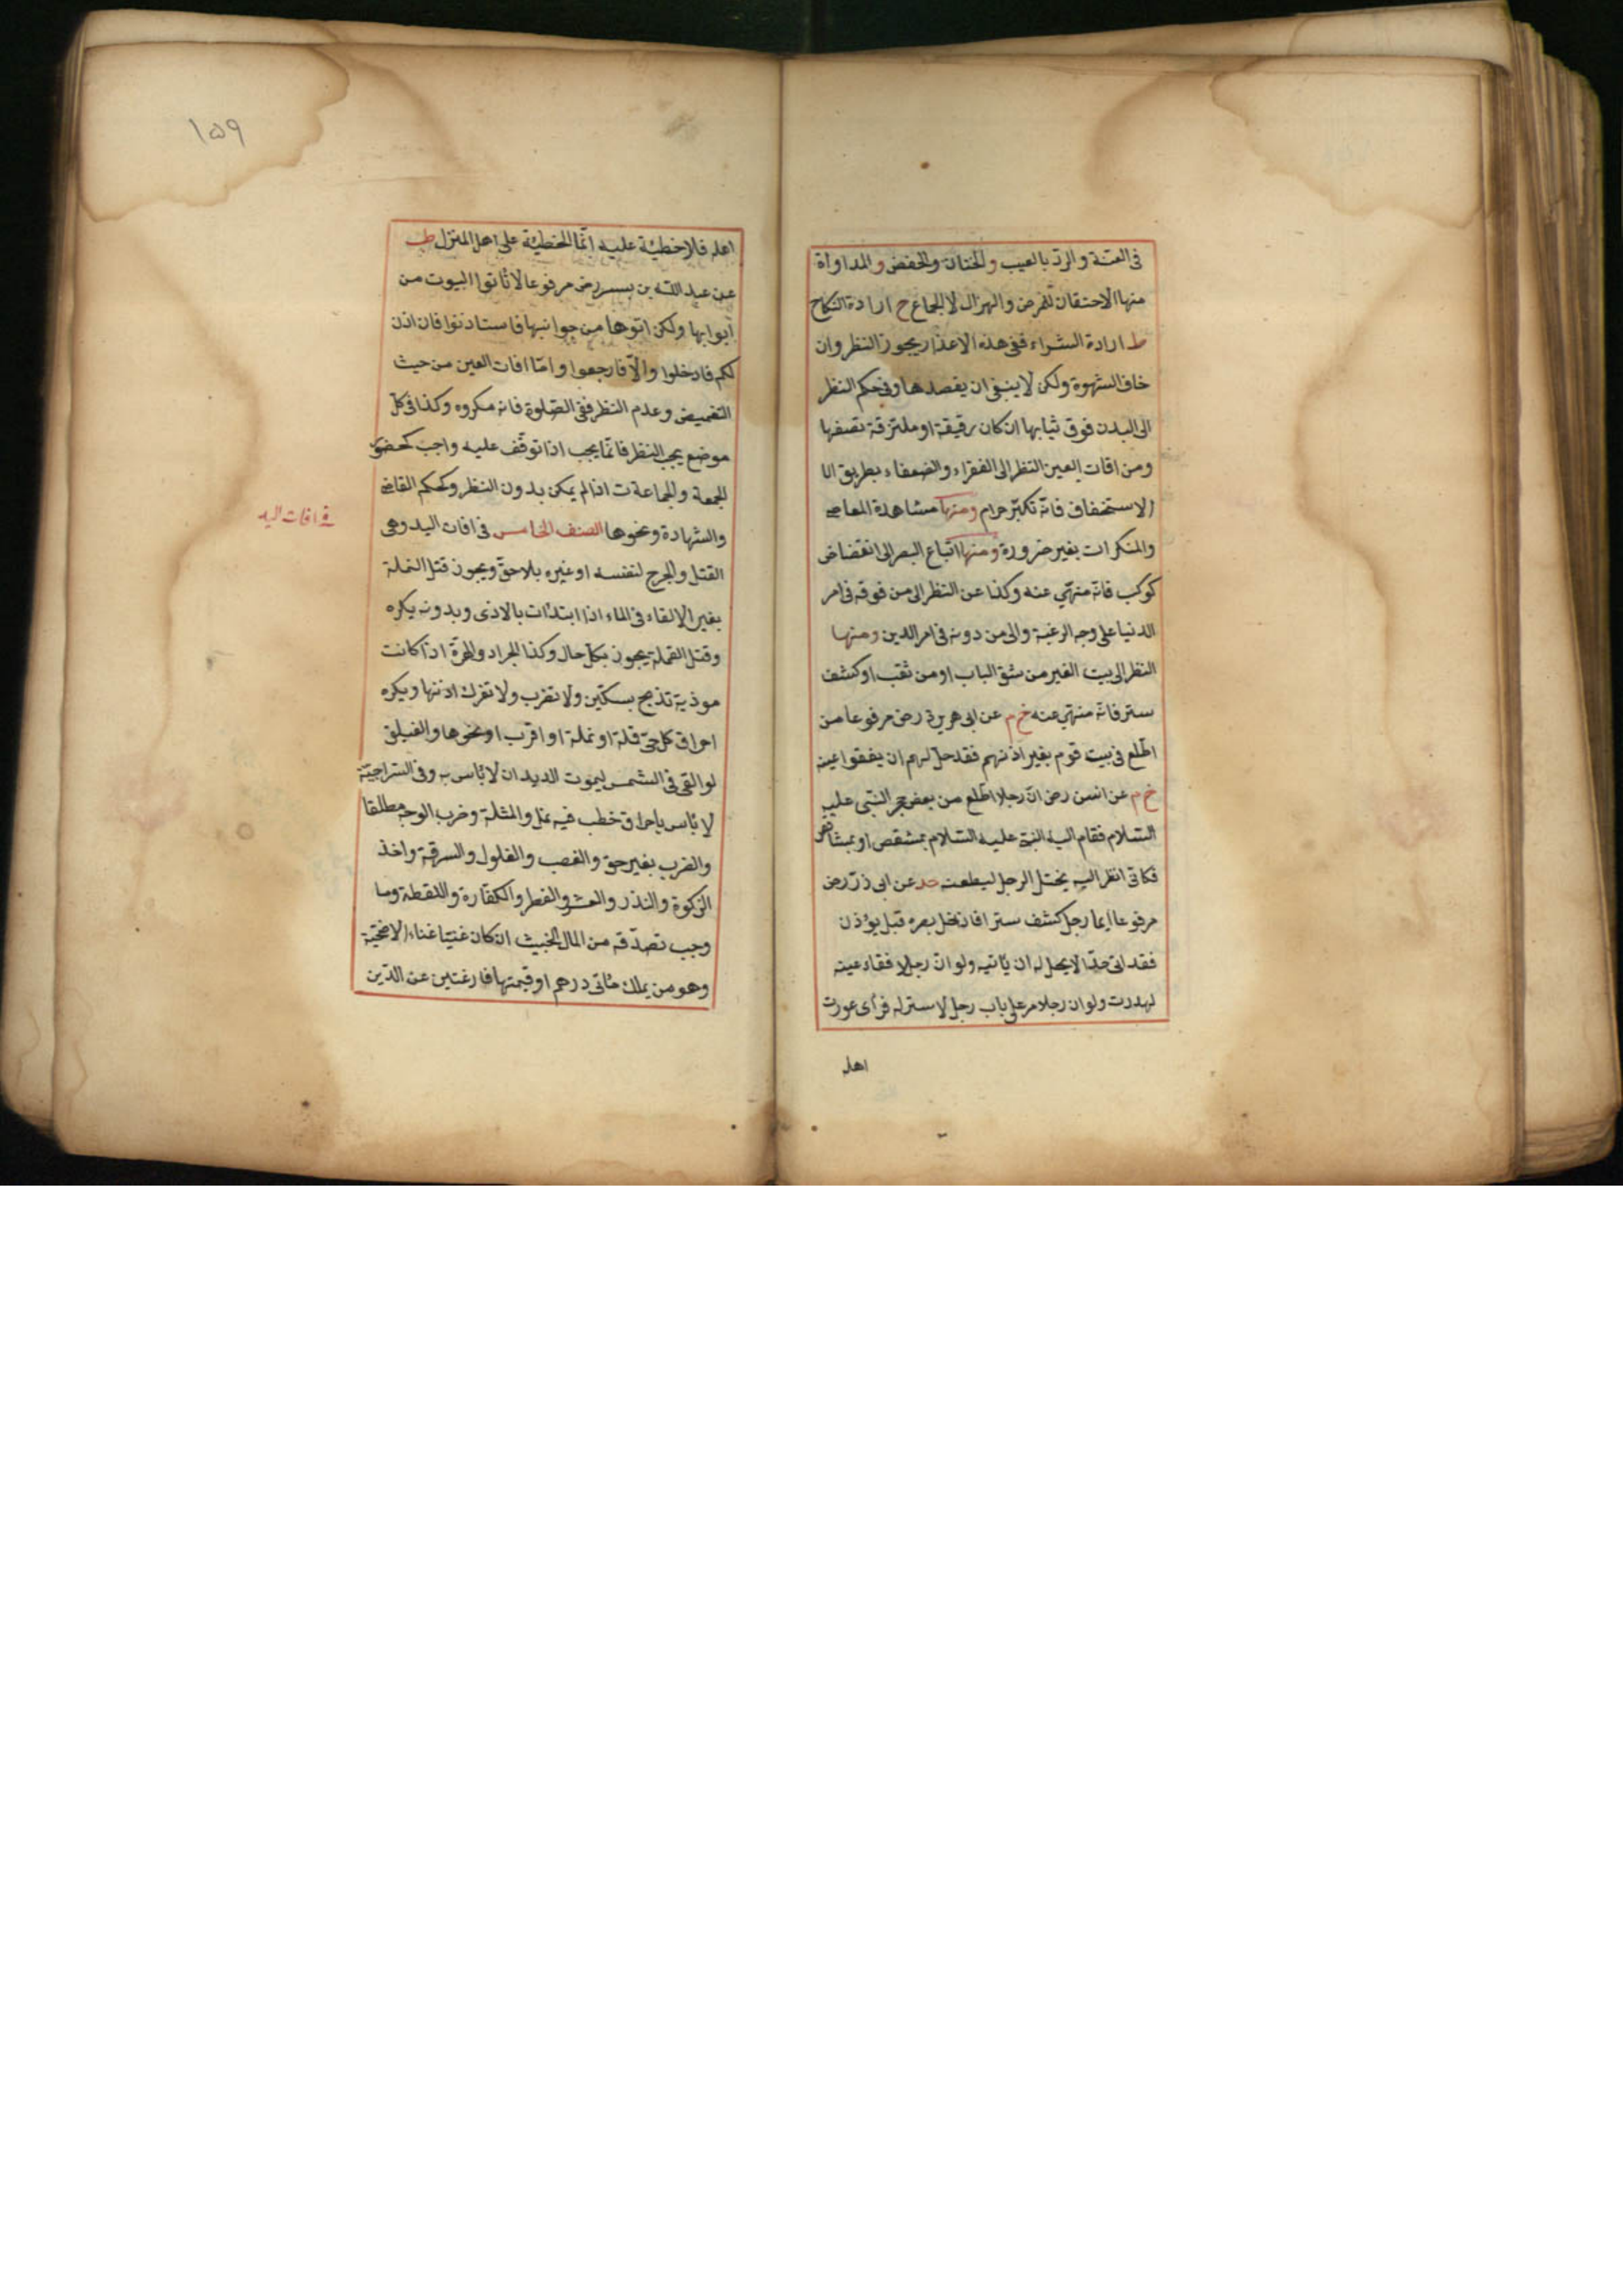 في العنة والرد بالعيب والختان والخفض والمداواة
منها الاحتقان للمرض والهزال لا للجماع ح ارادة النكاح
ط ارادة الشراء ففى هذه الاعذار يجوز النظر وان
خاف الشهوة ولكن لا ينبغى ان يقصدها وفى حكم النظر
الى البدن فوق ثيابها ان كان رقيقة او ملتزقة تصفها
ومن افات العين النظر الى الفقراء والضعفاء بطريق الا
الاستخفاف فانه تكبر حرام ومنها مشاهدة المعاصى
والمنكرات بغير ضرورة ومنها اتباع البصر الى انقضاض
كوكب فانه منهى عنه وكذا عن النظر الى من فوقه فى امر
الدنيا على وجه الرغبة والى من دونه فى امر الدين ومنها
النظر الى بيت الغير من شق الباب او من ثقب او كشف
ستر فانه منهى عنه خ م عن ابى هريرة رض مرفوعا من
اطلع فى بيت قوم بغير اذنهم فقد حل لهم ان يفقوا عينه
خ م عن انس رض ان رجلا اطلع من بعض حجر النبى عليه
السلام فقام اليه النبى عليه السلام بمشقص او بمشاقص
فكانى انظر اليه يختل الرجل ليطعنه حد عن ابى ذر رض
مرفوعا ايما رجل كشف سترا فادخل بصره قبل يؤذن
فقد اتى حدا لا يحل له ان يأتيه ولو ان رجلا فقاء عينه
لهدرت ولو ان رجلا مر على باب رجل لا ستر له فرأى عورت
اهله
١٥٩
اهله فلا خطيئة عليه انما الخطيئة على اهل المنزل طب
عن عبد الله بن بسر رض مرفوعا لا تأتوا البيوت من
ابوابها ولكن اتوها من جوانبها فاستاذنوا فان اذن
لكم فادخلوا والا فارجعوا واما افات العين من حيث
التغميض وعدم النظر ففى الصلوة فانه مكروه وكذا فى كل
موضع يجب النظر فانما يجب اذا توقف عليه واجب كحضور
الجمعة والجماعة ت اذا لم يمكن بدون النظر وكحكم القاضى
والشهادة ونحوها الصنف الخامس فى افات اليد وهى
فى افات اليد
القتل والجرح لنفسه او غيره بلا حق ويجوز قتل النملة
بغير الالقاء فى الماء اذا ابتدأت بالاذى وبدونه يكره
وقتل القملة يجوز بكل حال وكذا الجراد والهرة اذا كانت
موذية تذبح بسكين ولا تضرب ولا تفرك اذنها ويكره
احراق كل حى قملة او نملة او اقرب او نحوها والفيلق
لو القى فى الشمس ليموت الديدان لا بأس به وفى السراجية
لا بأس باحراق خطب فيه نمل والمثلة وضرب الوجه مطلقا
والضرب بغير حق والغصب والغلول والسرقة واخذ
الزكوة والنذر والعشر والفطر والكفارة واللقطة وما
وجب تصدقه من المال الخبيث ان كان غنيا غناء الاضحية
وهو من يملك مأتى درهم او قيمتها فارغتين عن الدين